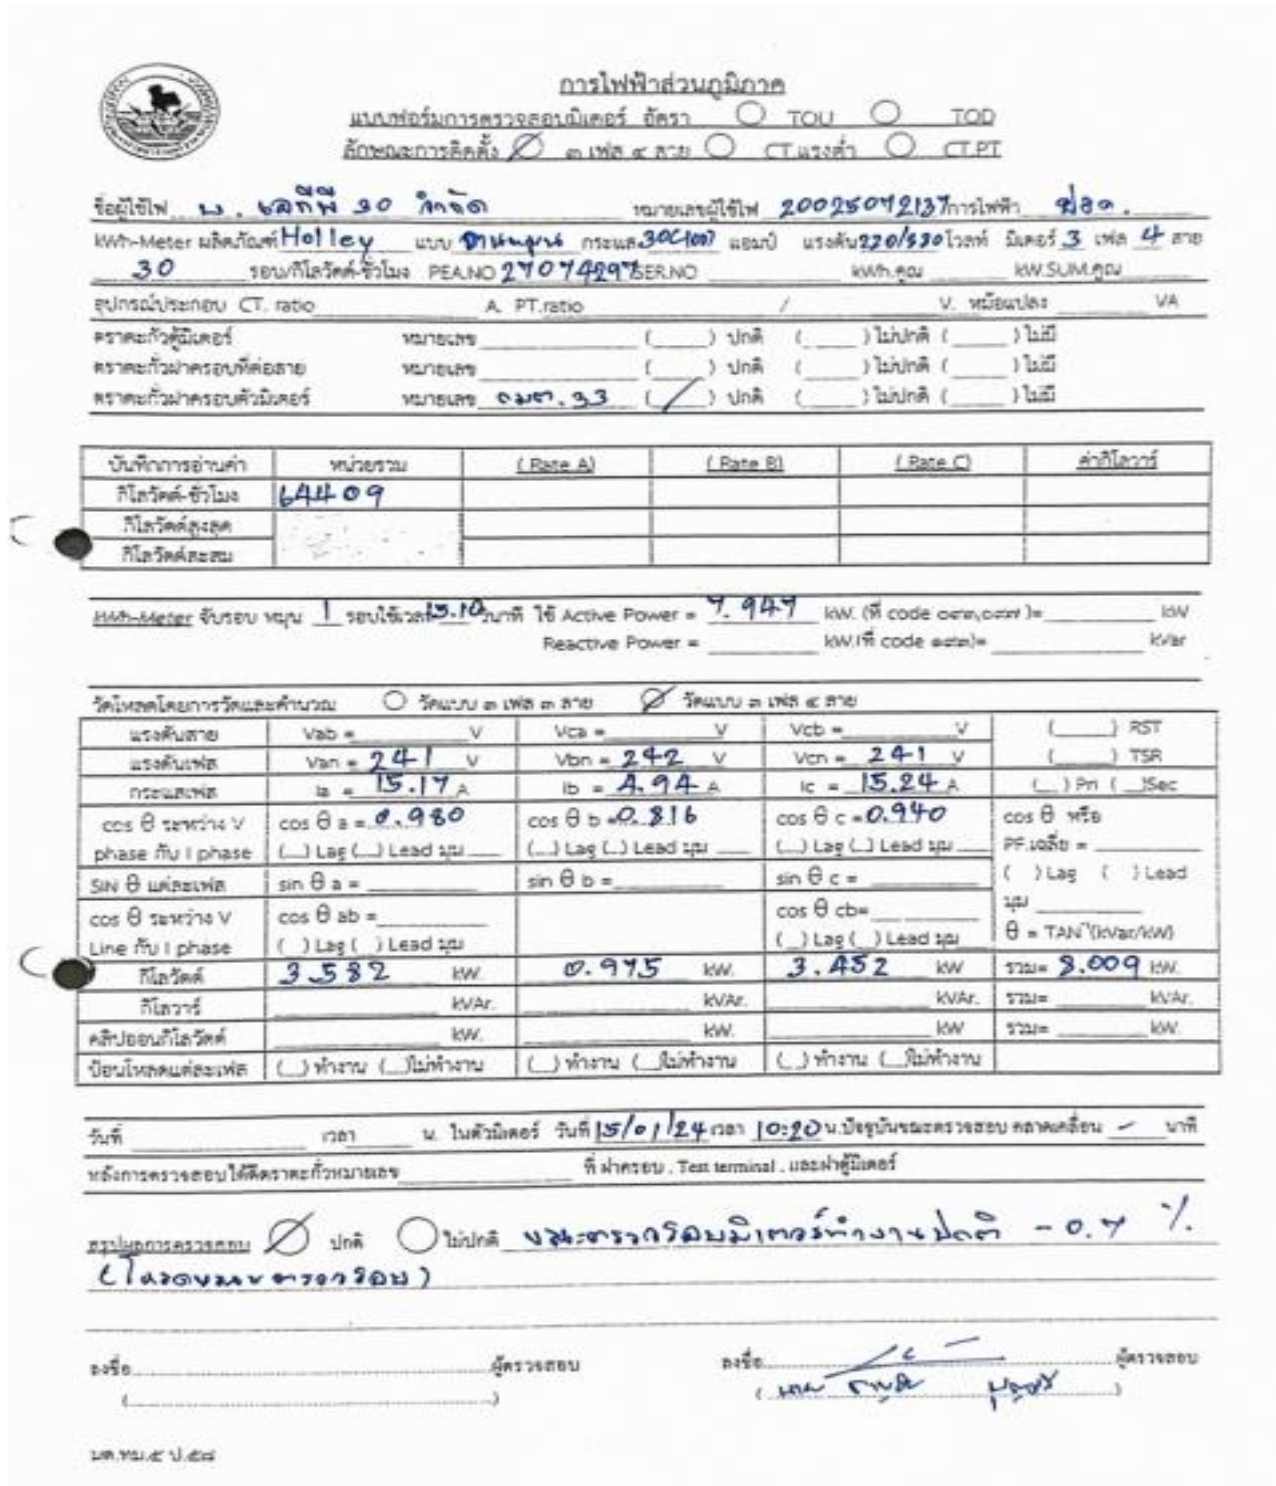 การไฟฟ้าส่วนภูมิภาค
แบบฟอร์มการตรวจสอบมิเตอร์ อัตรา TOU TOD
ลักษณะการติดตั้ง ๓ เฟส ๔ สาย CT.แรงต่ำ CT.PT
ชื่อผู้ใช้ไฟ บ. เจทีพี 90 จำกัด หมายเลขผู้ใช้ไฟ 20025072137 การไฟฟ้า
kWh-Meter ผลิตภัณฑ์ Holley แบบ จานหมุน กระแส 30(100) แอมป์ แรงดัน 220/380 โวลท์ มิเตอร์ 3 เฟส 4 สาย
30 รอบ/กิโลวัตต์-ชั่วโมง PEA.NO 27074297 SER.NO kWh.คูณ kW.SUM.คูณ
อุปกรณ์ประกอบ CT. ratio A. PT.ratio / V. หม้อแปลง VA
ตราตะกั่วตู้มิเตอร์ หมายเลข ( ) ปกติ ( ) ไม่ปกติ ( ) ไม่มี
ตราตะกั่วฝาครอบที่ต่อสาย หมายเลข ( ) ปกติ ( ) ไม่ปกติ ( ) ไม่มี
ตราตะกั่วฝาครอบตัวมิเตอร์ หมายเลข กมต. 33 ( / ) ปกติ ( ) ไม่ปกติ ( ) ไม่มี
บันทึกการอ่านค่า หน่วยรวม ( Rate A) ( Rate B) ( Rate C) ค่ากิโลวาร์
กิโลวัตต์-ชั่วโมง 64409
กิโลวัตต์สูงสุด
กิโลวัตต์สะสม
kWh-Meter จับรอบ หมุน 1 รอบใช้เวลา 15.10 วินาที ใช้ Active Power = 7.947 kW. (ที่ code )= kW
Reactive Power = kW.(ที่ code )= kVar
วัดโหลดโดยการวัดและคำนวณ วัดแบบ ๓ เฟส ๓ สาย วัดแบบ ๓ เฟส ๔ สาย
แรงดันสาย Vab = V Vca = V Vcb = V ( ) RST
แรงดันเฟส Van = 241 V Vbn = 242 V Vcn = 241 V ( ) TSR
กระแสเฟส Ia = 15.17 A Ib = 4.94 A Ic = 15.24 A ( ) Pri ( )Sec
cos θ ระหว่าง V cos θ a = 0.980 cos θ b = 0.816 cos θ c = 0.940 cos θ หรือ
phase กับ I phase ( ) Lag ( ) Lead มุม ( ) Lag ( ) Lead มุม ( ) Lag ( ) Lead มุม PF.เฉลี่ย =
SIN θ แต่ละเฟส sin θ a = sin θ b = sin θ c = ( ) Lag ( ) Lead
มุม
cos θ ระหว่าง V cos θ ab = cos θ cb=
Line กับ I phase ( ) Lag ( ) Lead มุม ( ) Lag ( ) Lead มุม θ = TAN⁻(kVar/kW)
กิโลวัตต์ 3.582 kW. 0.975 kW. 3.452 kW รวม= 8.009 kW.
กิโลวาร์ kVAr. kVAr. kVAr. รวม= kVAr.
คลิปออนกิโลวัตต์ kW. kW. kW รวม= kW.
ป้อนโหลดแต่ละเฟส ( ) ทำงาน ( )ไม่ทำงาน ( ) ทำงาน ( )ไม่ทำงาน ( ) ทำงาน ( )ไม่ทำงาน
วันที่ เวลา น. ในตัวมิเตอร์ วันที่ 15/01/24 เวลา 10:20 น.ปัจจุบันขณะตรวจสอบ คลาดเคลื่อน - นาที
หลังการตรวจสอบได้ตีตราตะกั่วหมายเลข ที่ ฝาครอบ . Test terminal . และฝาตู้มิเตอร์
สรุปผลการตรวจสอบ ปกติ ไม่ปกติ ขณะตรวจสอบมิเตอร์ทำงานปกติ -0.7 %
(โหลดขณะตรวจสอบ)
ลงชื่อ ผู้ตรวจสอบ ลงชื่อ ผู้ตรวจสอบ
( ) ( นาย )
มต.ทม.๕ ป.๕๘